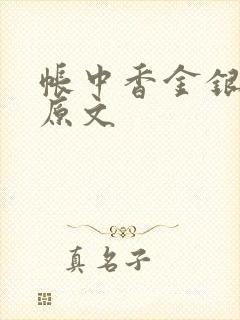 帐中香金银
原文
真名子